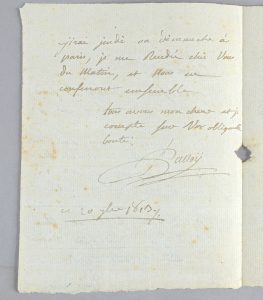 jirai jeudi ou dimanche à
paris, je me Rendré chés Vous
Du Matin, et Nous en
conferrons ensemble.
tous avons mon cher et je
compte sur Vos obligente
bonté.
Palloy
ce 20 9bre 1813